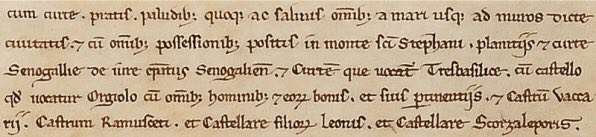 cum curte. pratis. paludibꝫ quoqꝫ ac salinis om̅ibꝫ a mari usqꝫ ad muros dicte
ciuitatis. ⁊ cu̅ om̅ibꝫ possessionibꝫ positis in monte sc̅i Stephani. planitijs ⁊ curte
Senogallie de iure ep̅atus Senogallien̅. ⁊ Curte̅ que uocat᷑ Tresbasilice. cu̅ castello
qd̅ uocatur Orgiolo cu̅ om̅ibꝫ hominibꝫ ⁊ eoꝝ bonis. et suis ꝑtinentijs. ⁊ Castru̅ Vacca
rij. Castrum Ramusceti. et Castellare filioꝝ Leonis. et Castellare Scorzaleporis.